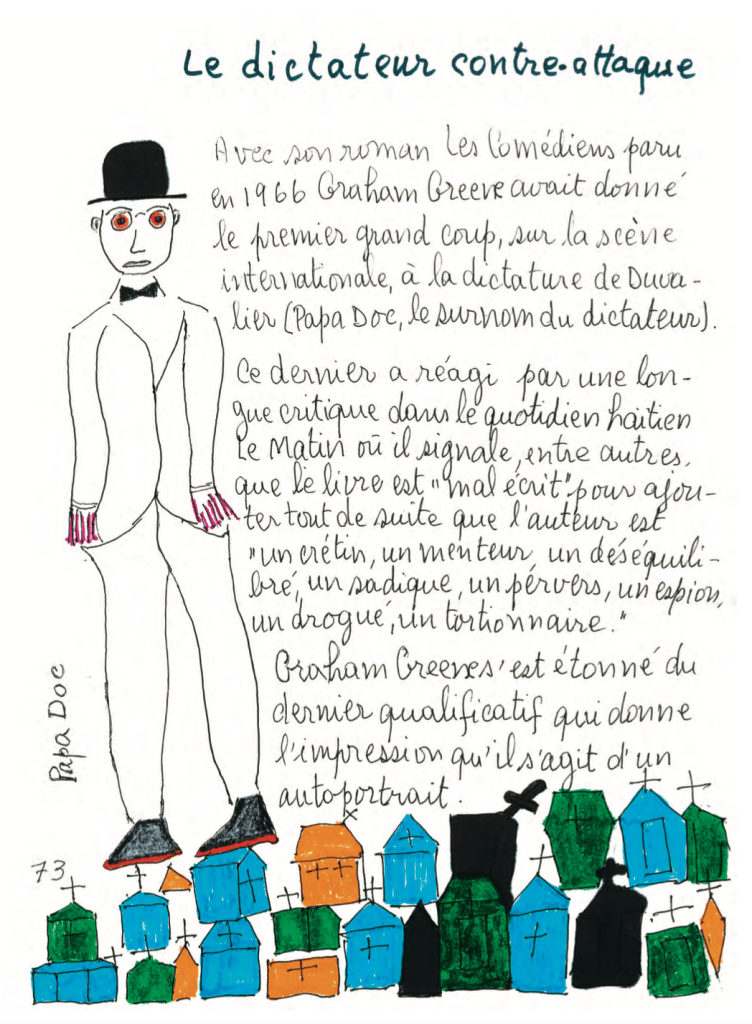 Le dictateur contre-attaque
Avec son roman Les Comédiens paru
en 1966 Graham Greene avait donné
le premier grand coup, sur la scène
internationale, à la dictature de Duva-
lier (Papa Doc, le surnom du dictateur).
Ce dernier a réagi par une lon-
gue critique dans le quotidien haïtien
Le Matin où il signale, entre autres,
que le livre est "mal écrit" pour ajou-
ter tout de suite que l'auteur est
"un crétin, un menteur, un déséquili-
bré, un sadique, un pervers, un espion,
un drogué, un tortionnaire."
Graham Greene s'est étonné du
dernier qualificatif qui donne
l'impression qu'il s'agit d'un
autoportrait.
Papa Doc
73